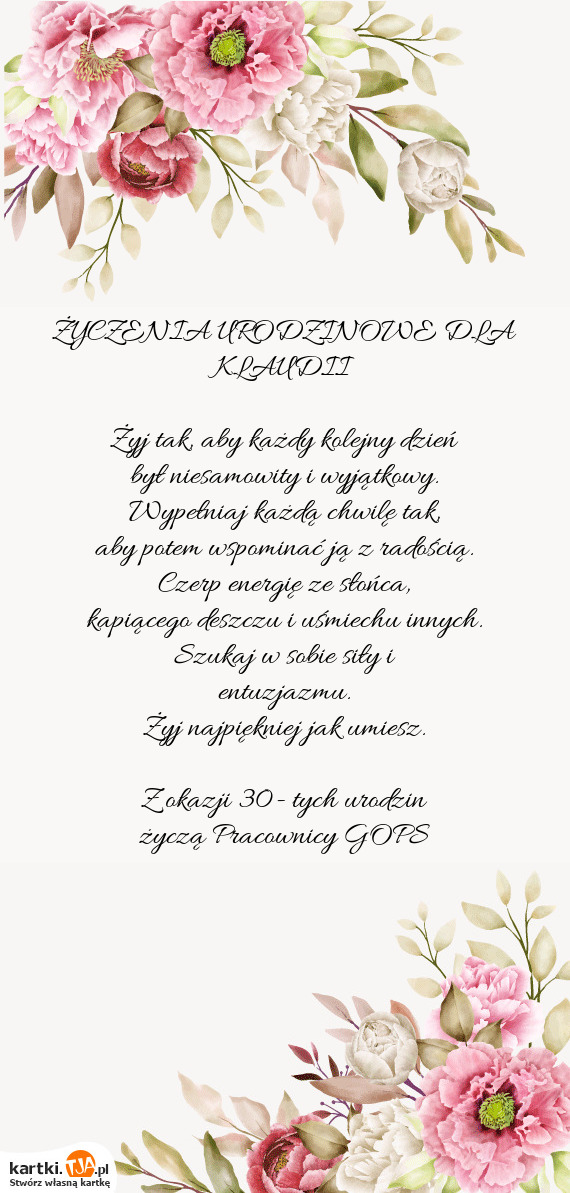 ŻYCZENIA URODZINOWE DLA
KLAUDII
Żyj tak, aby każdy kolejny dzień
był niesamowity i wyjątkowy.
Wypełniaj każdą chwilę tak,
aby potem wspominać ją z radością.
Czerp energię ze słońca,
kapiącego deszczu i uśmiechu innych.
Szukaj w sobie siły i
entuzjazmu.
Żyj najpiękniej jak umiesz.
Z okazji 30 - tych urodzin
życzą Pracownicy GOPS
kartki.TJA.pl
Stwórz własną kartkę